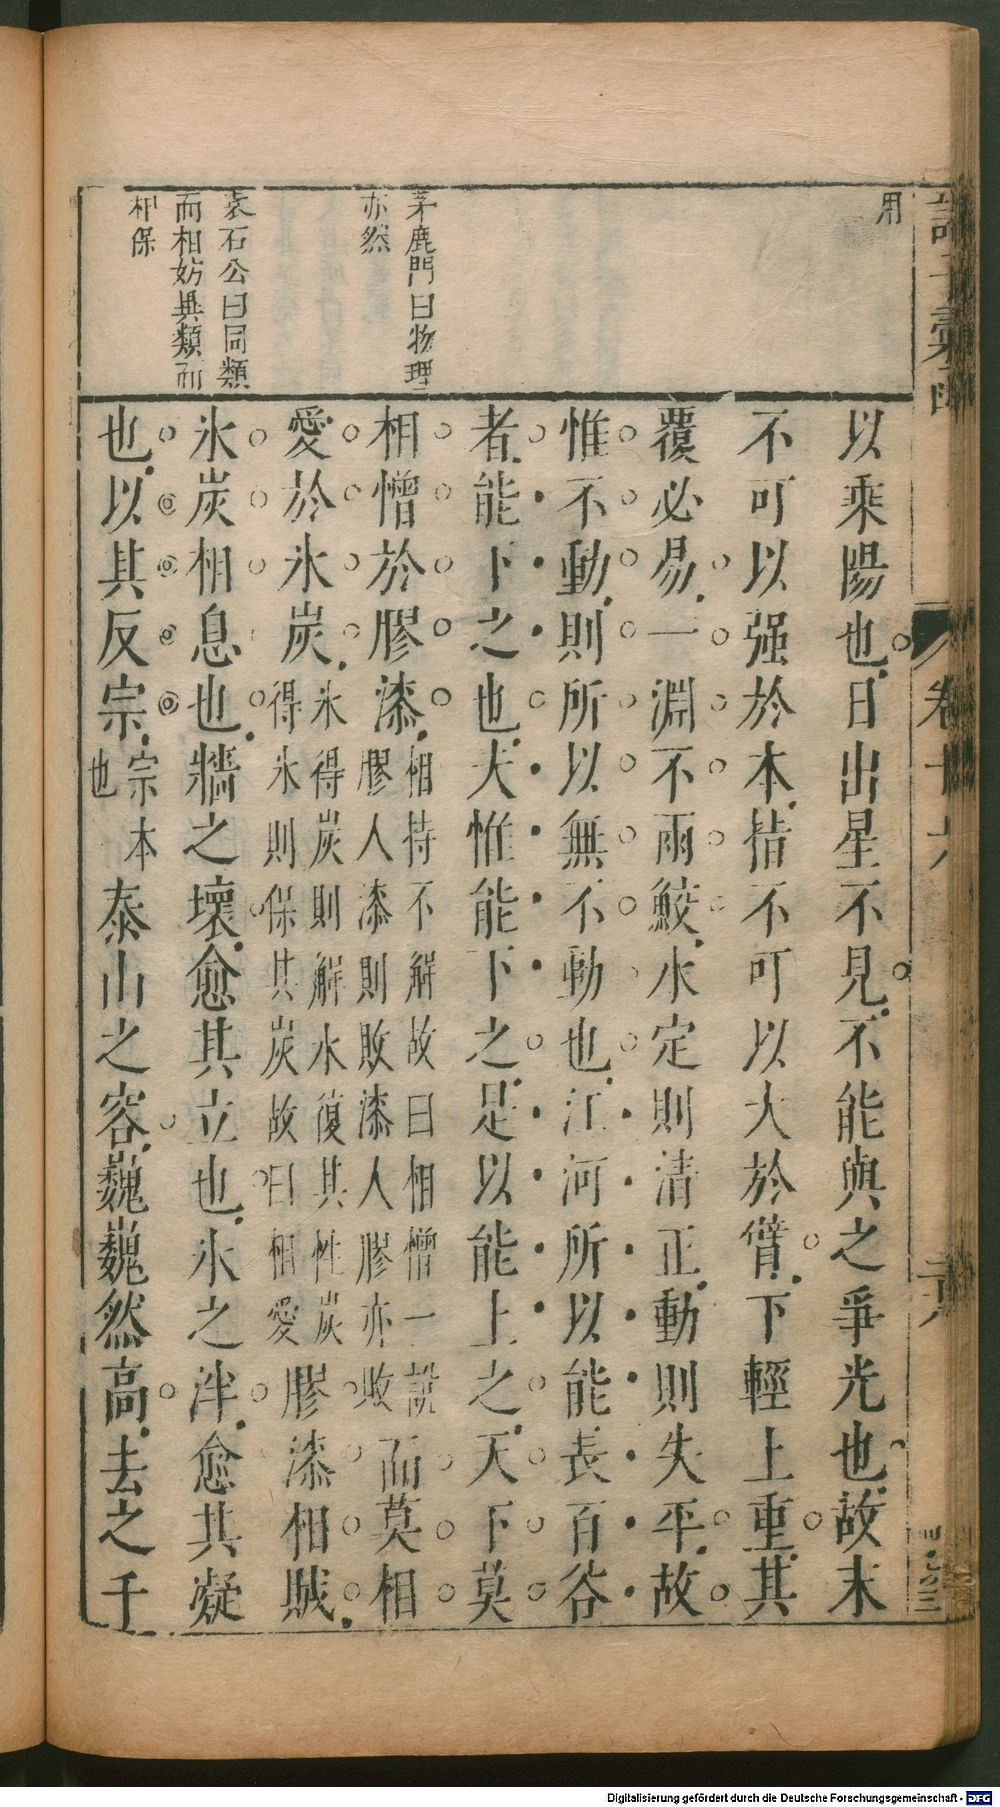 用
茅鹿門曰物理
亦然
袁石公曰同類
而相妨異類而
相保
以乘陽也日出星不見不能與之爭光也故末
不可以强於本指不可以大於臂下輕上重其
覆必易一淵不兩鮫水定則清正動則失平故
惟不動則所以無不動也江河所以能長百谷
者能下之也夫惟能下之足以能上之天下莫
相憎於膠漆
相持不解故曰相憎一說
膠人漆則敗漆人膠亦敗
而莫相
愛於氷炭
氷得炭則解水復其性炭
得氷則保其炭故曰相愛
膠漆相賊
氷炭相息也牆之壞愈其立也氷之泮愈其凝
也以其反宗
宗本
也
泰山之容巍巍然高去之千
諸子彙函
卷十六
二十八
Digitalisierung gefördert durch die Deutsche Forschungsgemeinschaft - DFG